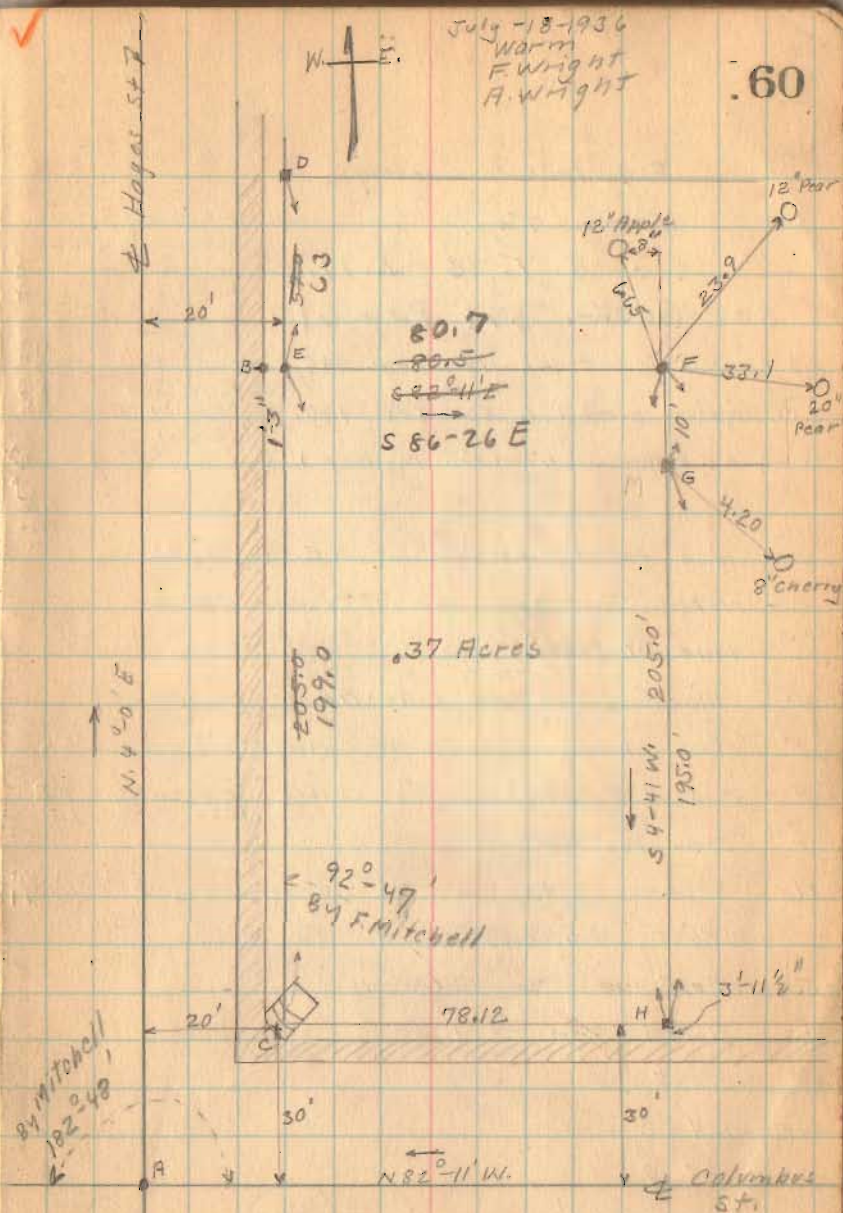 July-18-1936
Warm
F. Wright
A. Wright
.60
W. E.
℄ Hayes St
D
12" Pear
12" Apple
3"
6.65
23.9
63
20'
80.7
80.5
S 82°-11' E
S 86-26 E
B
E
F
33.1
20"
Pear
1'-3"
10'
M
G
4.20
8" Cherry
.37 Acres
205.0
199.0
N. 4°-0' E
S 4-41 W. 205.0'
195.0'
92°-47'
By F. Mitchell
20'
C
78.12
H
3'-11½"
By Mitchell
182°-48'
30'
30'
A
N 82°-11' W.
℄ Columbus
St.